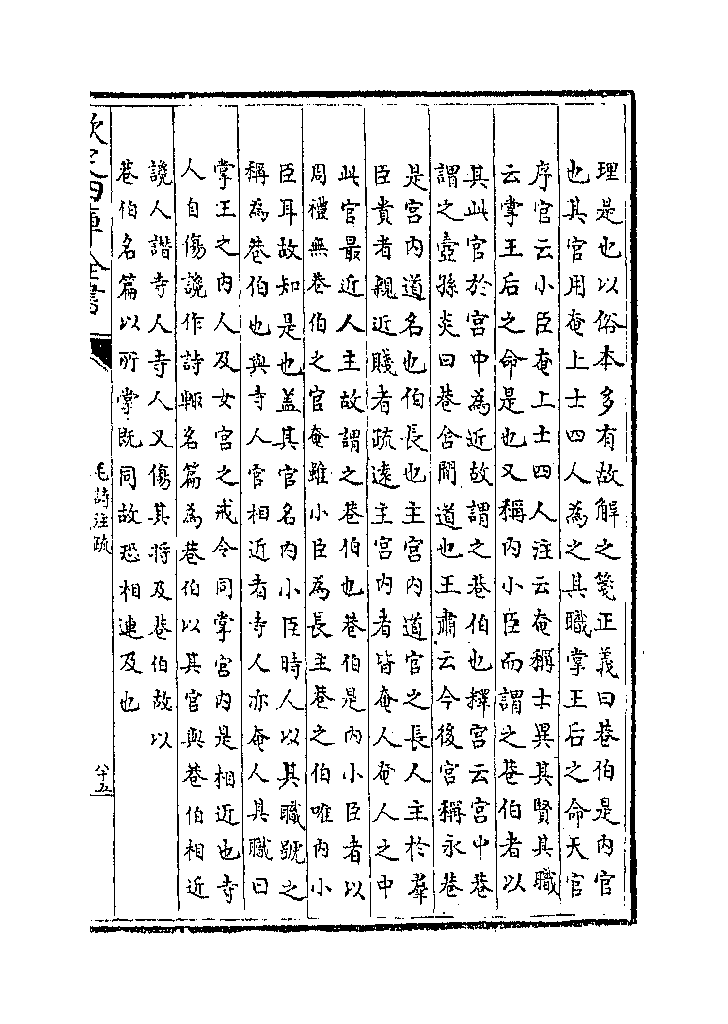 理是也以俗本多有故解之箋正義曰巷伯是内官
也其官用奄上士四人為之其職掌王后之命天官
序官云小臣奄上士四人注云奄稱士異其賢其職
云掌王后之命是也又稱内小臣而謂之巷伯者以
其此官於宫中為近故謂之巷伯也釋宫云宫中巷
謂之壼孫炎曰巷舍間道也王肅云今後宫稱永巷
是宫内道名也伯長也主宫内道官之長人主於羣
臣貴者親近賤者疏逺主宫内者皆奄人奄人之中
此官最近人主故謂之巷伯也巷伯是内小臣者以
周禮無巷伯之官奄雖小臣為長主巷之伯唯内小
臣耳故知是也盖其官名内小臣時人以其職號之
稱為巷伯也與寺人官相近者寺人亦奄人其職曰
掌王之内人及女宫之戒令同掌宫内是相近也寺
人自傷讒作詩輙名篇為巷伯以其官與巷伯相近
讒人譖寺人寺人又傷其將及巷伯故以
巷伯名篇以所掌既同故恐相連及也
欽定四庫全書
毛詩注疏
八十五